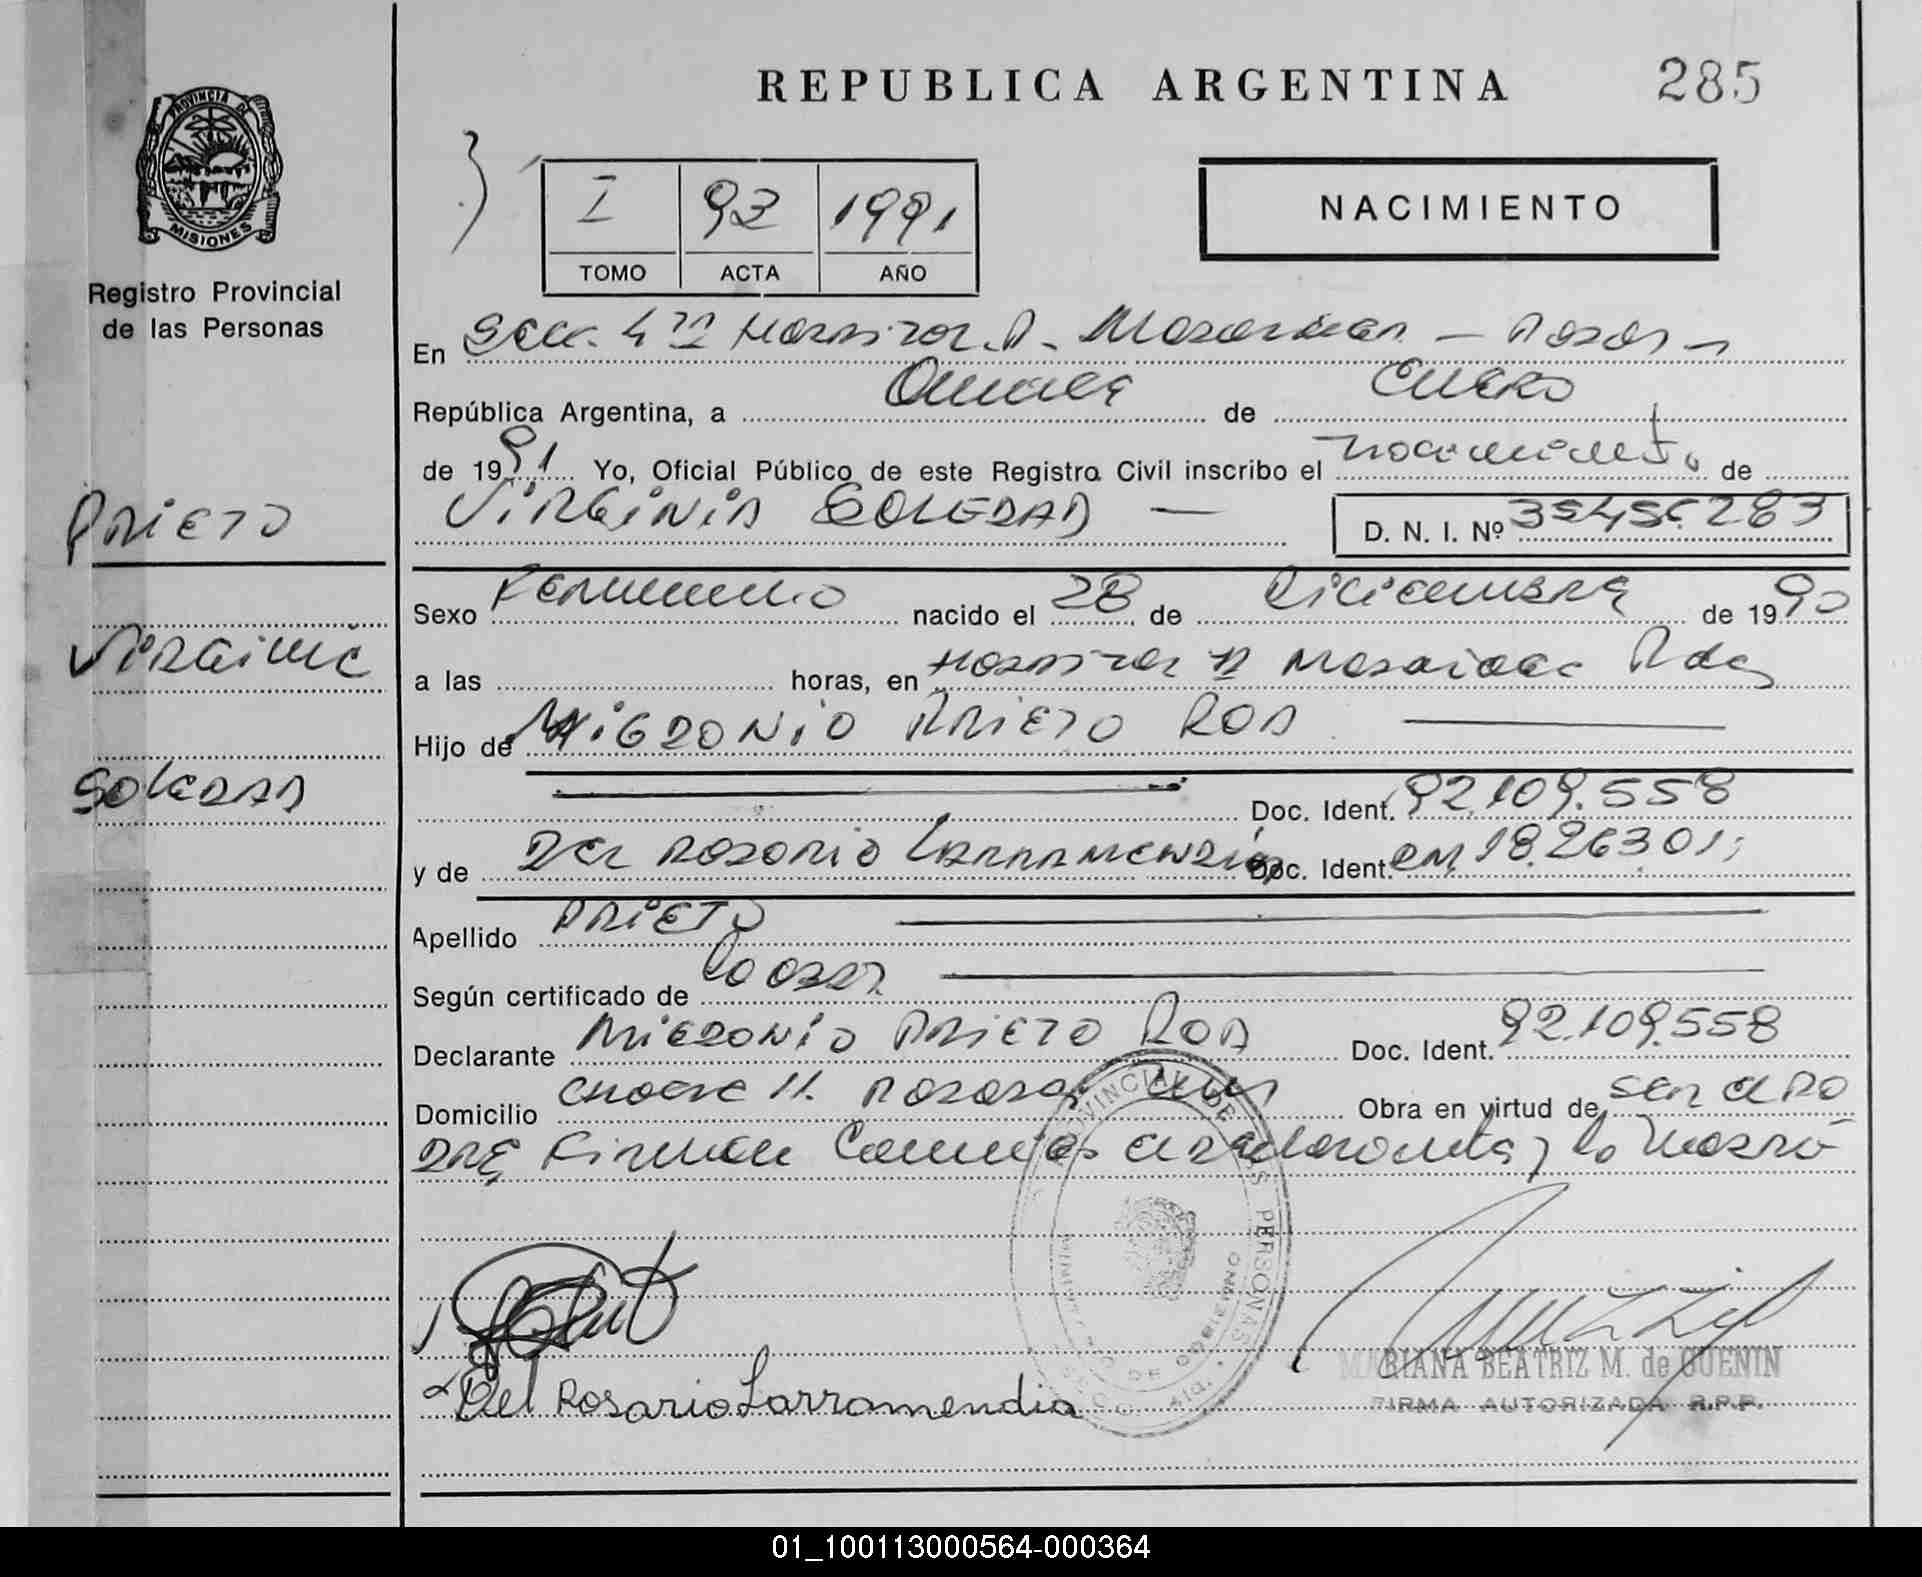 REPUBLICA ARGENTINA 285
PROVINCIA DE
MISIONES
Registro Provincial
de las Personas
I 92 1991
TOMO ACTA AÑO
NACIMIENTO
En Secc. 4ta Hospital R. Madariaga - Posadas
República Argentina, a de Enero
de 1991 Yo, Oficial Público de este Registro Civil inscribo el nacimiento de
VIRGINIA SOLEDAD
D. N. I. Nº 35.456.283
PRIETO
VIRGINIA
SOLEDAD
Sexo Femenino nacido el 28 de Diciembre de 1990
a las horas, en Hospital R Madariaga Pdas
Hijo de MIGDONIO PRIETO ROA
Doc. Ident. 92.109.558
y de DEL ROSARIO LARRAMENDIA Doc. Ident.
Apellido PRIETO
Según certificado de
Declarante MIGDONIO PRIETO ROA Doc. Ident. 92.109.558
Domicilio Posadas Obra en virtud de ser el PD
DRE Firman la
Del Rosario Larramendia
PROVINCIAL DE LAS PERSONAS
MINISTERIO DE GOBIERNO
MARIANA BEATRIZ M. de GUENIN
FIRMA AUTORIZADA R.P.P.
01_100113000564-000364